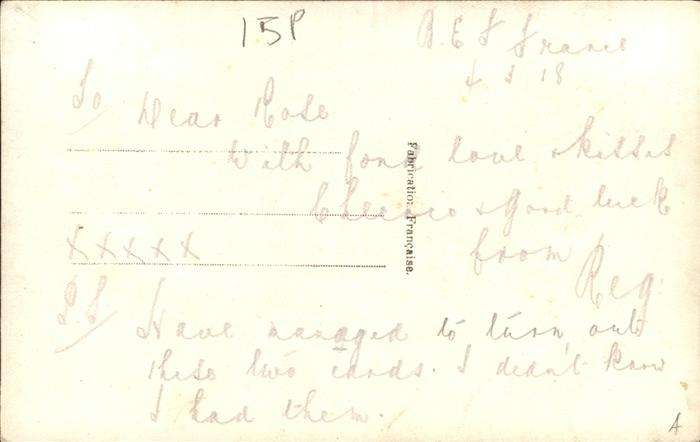 15P
B.E.F France
4 3 18
To Dear Rose
With fond love & kisses
Cheerio & Good luck
from
Reg.
XXXXX
P.S Have managed to turn out
these two cards. I didn't know
I had them.
Fabrication Française.
A